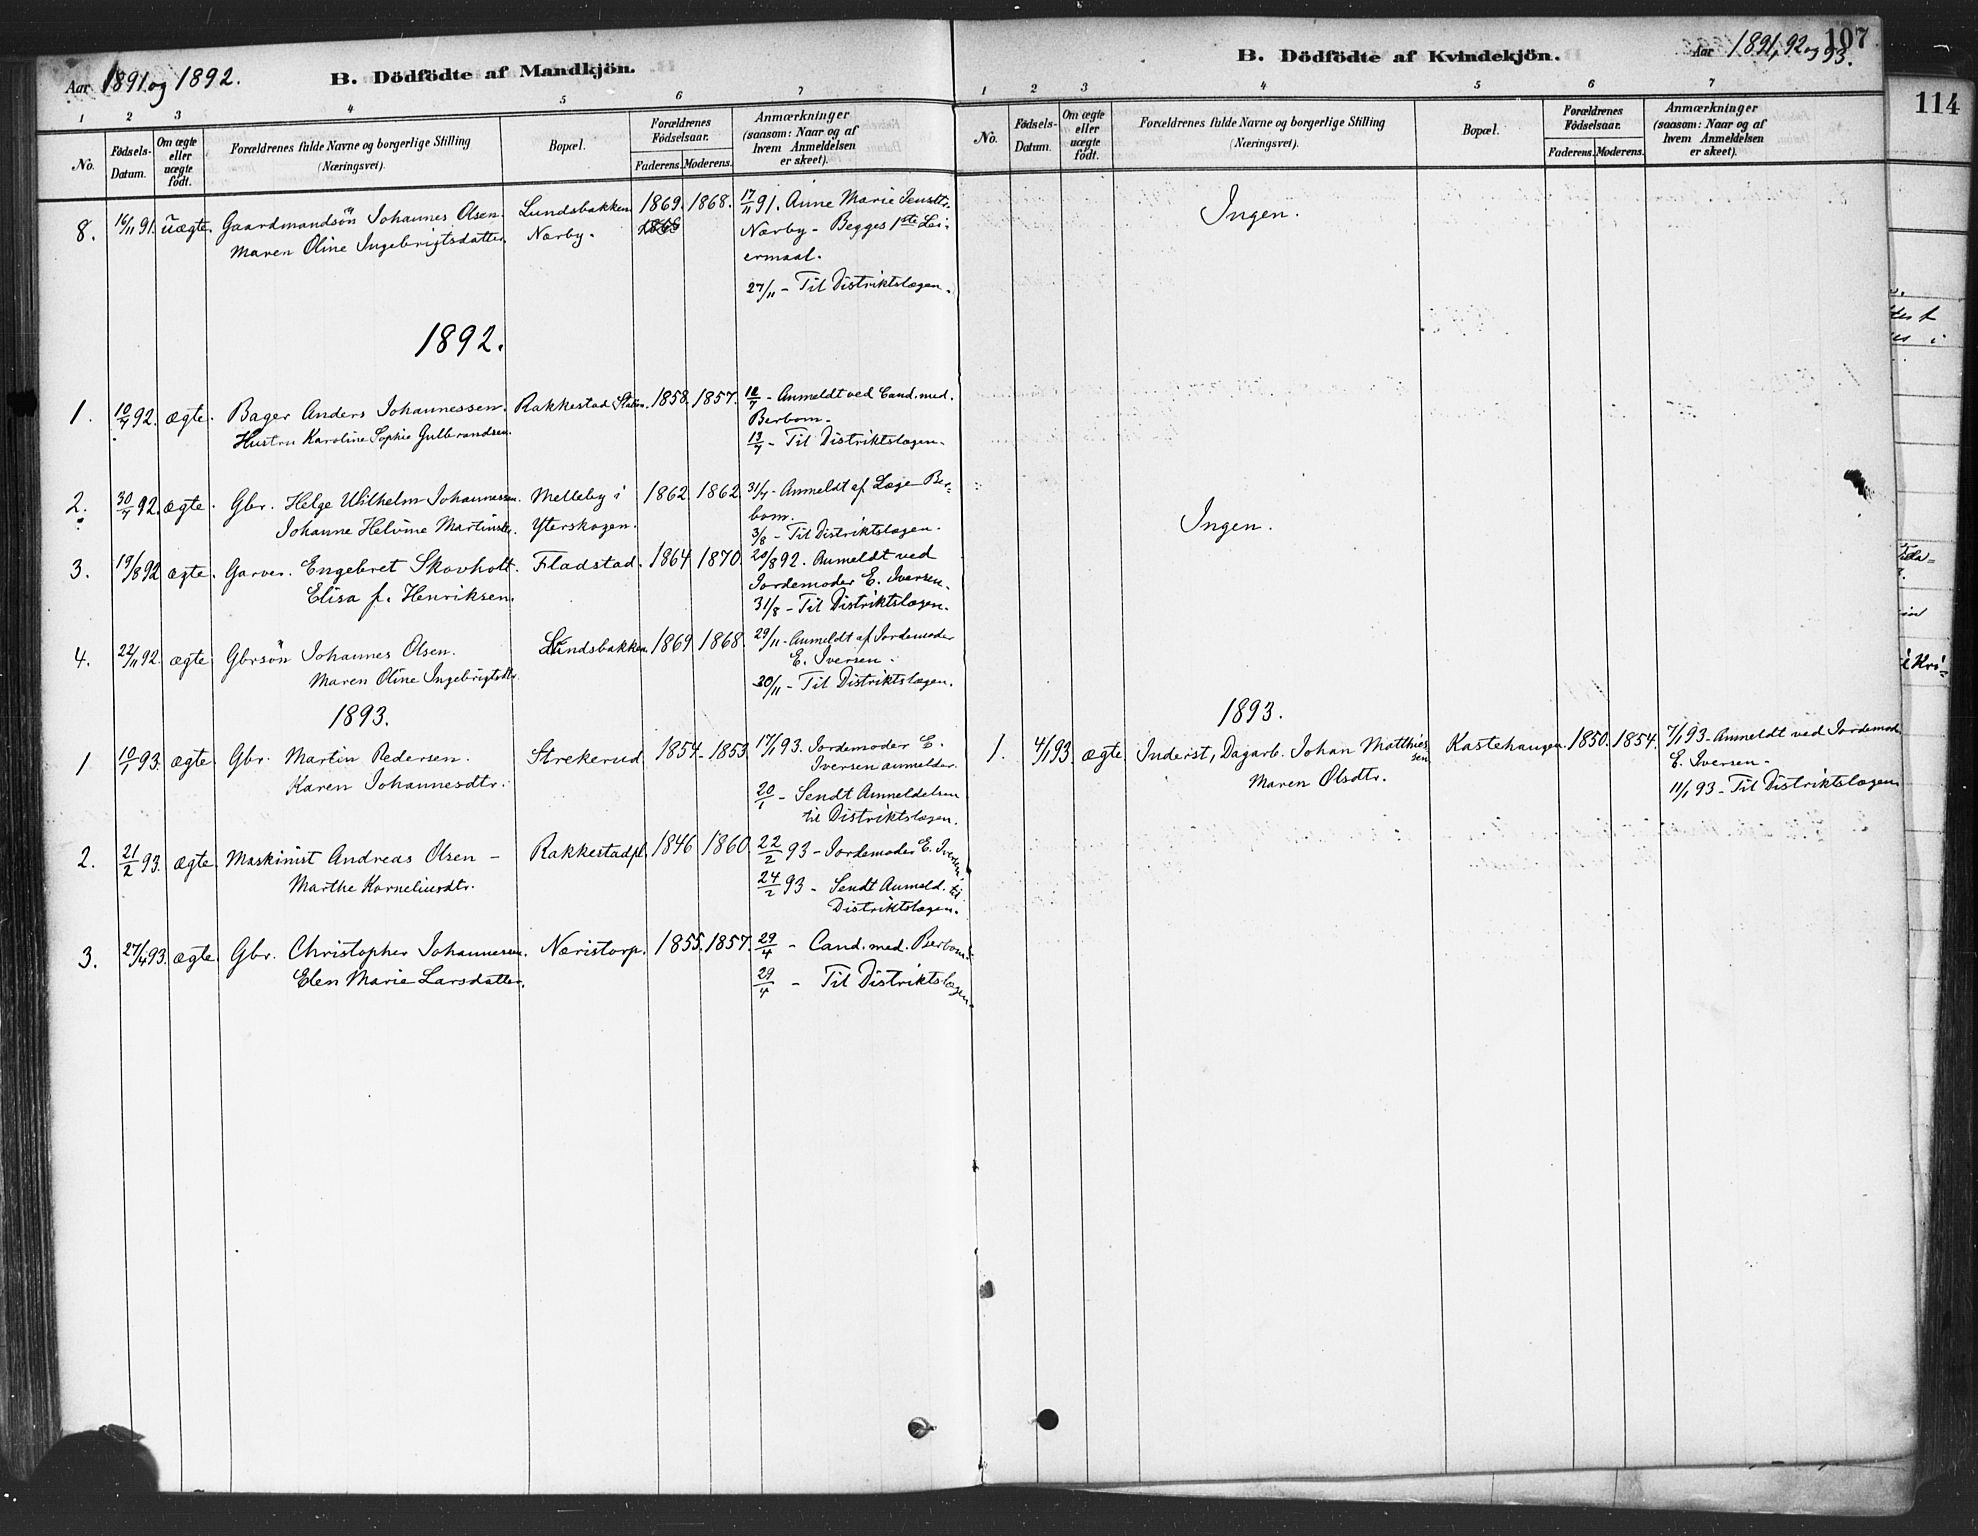 Aar 1891 og 1892.
B. Dödfödte af Mandkjön.
1 2 3 4 5 6 7
No.
Födsels-Datum.
Om ægte eller uægte født.
Forældrenes fulde Navne og borgerlige Stilling (Næringsvei).
Bopæl.
Forældrenes Födselsaar.
Faderens. Moderens.
Anmærkninger (saasom: Naar og af hvem Anmeldelsen er skeet).
8. 16/11 91. uægte. Gaardmandsön Johannes Olsen. Lundsbakken 1869. 1868. 17/11 91. Anne Marie Jensdtr.
Maren Oline Ingebrigtsdatter. Nærby. Nærby - Begges 1ste Lei-
ermaal.
27/11 - Til Distriktslægen.
1892.
1. 10/7 92. ægte. Bager Anders Johannessen. Rakkestad Station. 1858. 1857. 12/7 - Anmeldt ved Cand. med.
Hustru Karoline Sophie Gulbrandsen. Berbom.
13/7 - Til Distriktslægen.
2. 30/7 92. ægte. Gbr. Helge Wilhelm Johannessen. Melleby i 1862. 1862. 31/7 - Anmeldt af Læge Ber-
Johanne Helvine Martinsdtr. Yterskogen. bom.
3/8 - Til Distriktslægen.
3. 19/8 92 ægte. Garver. Engebret Skovholt. Fladstad. 1864 1870. 20/8 92. Anmeldt ved
Elisa f. Henriksen. Jordemoder E. Iversen.
31/8 - Til Distriktslægen.
4. 22/11 92. ægte Gbrsön Johannes Olsen. Lundsbakken. 1869 1868. 29/11 - Anmeldt af Jordemoder
Maren Oline Ingebrigtsdtr. E. Iversen.
30/11 - Til Distriktslægen.
1893.
1 10/1 93. ægte. Gbr. Martin Pedersen. Strekerud 1854 - 1853. 17/1 93. Jordemoder E.
Karen Johannesdtr. Iversen anmelder.
20/1 - Sendt Anmeldelsen
til Distriktslægen.
2. 21/2 93. ægte. Maskinist Andreas Olsen - Rakkestadpl. 1846 1860. 22/2 93 - Jordemoder E. Iversen.
Marthe Korneliusdtr. 24/2 93 - Sendt Anmeld. til
Distriktslægen.
3. 27/4 93. ægte. Gbr. Christopher Johannessen. Næristorp. 1855. 1857. 29/4 - Cand. med. Berbom.
Elen Marie Larsdatter. 29/4 - Til Distriktslægen.
B. Dödfödte af Kvindekjön.
Aar 1891, 92 og 93.
107
1 2 3 4 5 6 7
No.
Födsels-Datum.
Om ægte eller uægte födt.
Forældrenes fulde Navne og borgerlige Stilling (Næringsvei).
Bopæl.
Forældrenes Födselsaar.
Faderens. Moderens.
Anmærkninger (saasom: Naar og af hvem Anmeldelsen er skeet).
Ingen.
Ingen.
1893.
1. 4/1 93. ægte Inderst, Dagarb. Johan Matthiessen Kastehaugen. 1850. 1854. 7/1 93 - Anmeldt ved Jordemod.
Maren Olsdtr. E. Iversen.
11/1 93 - Til Distriktslægen
114